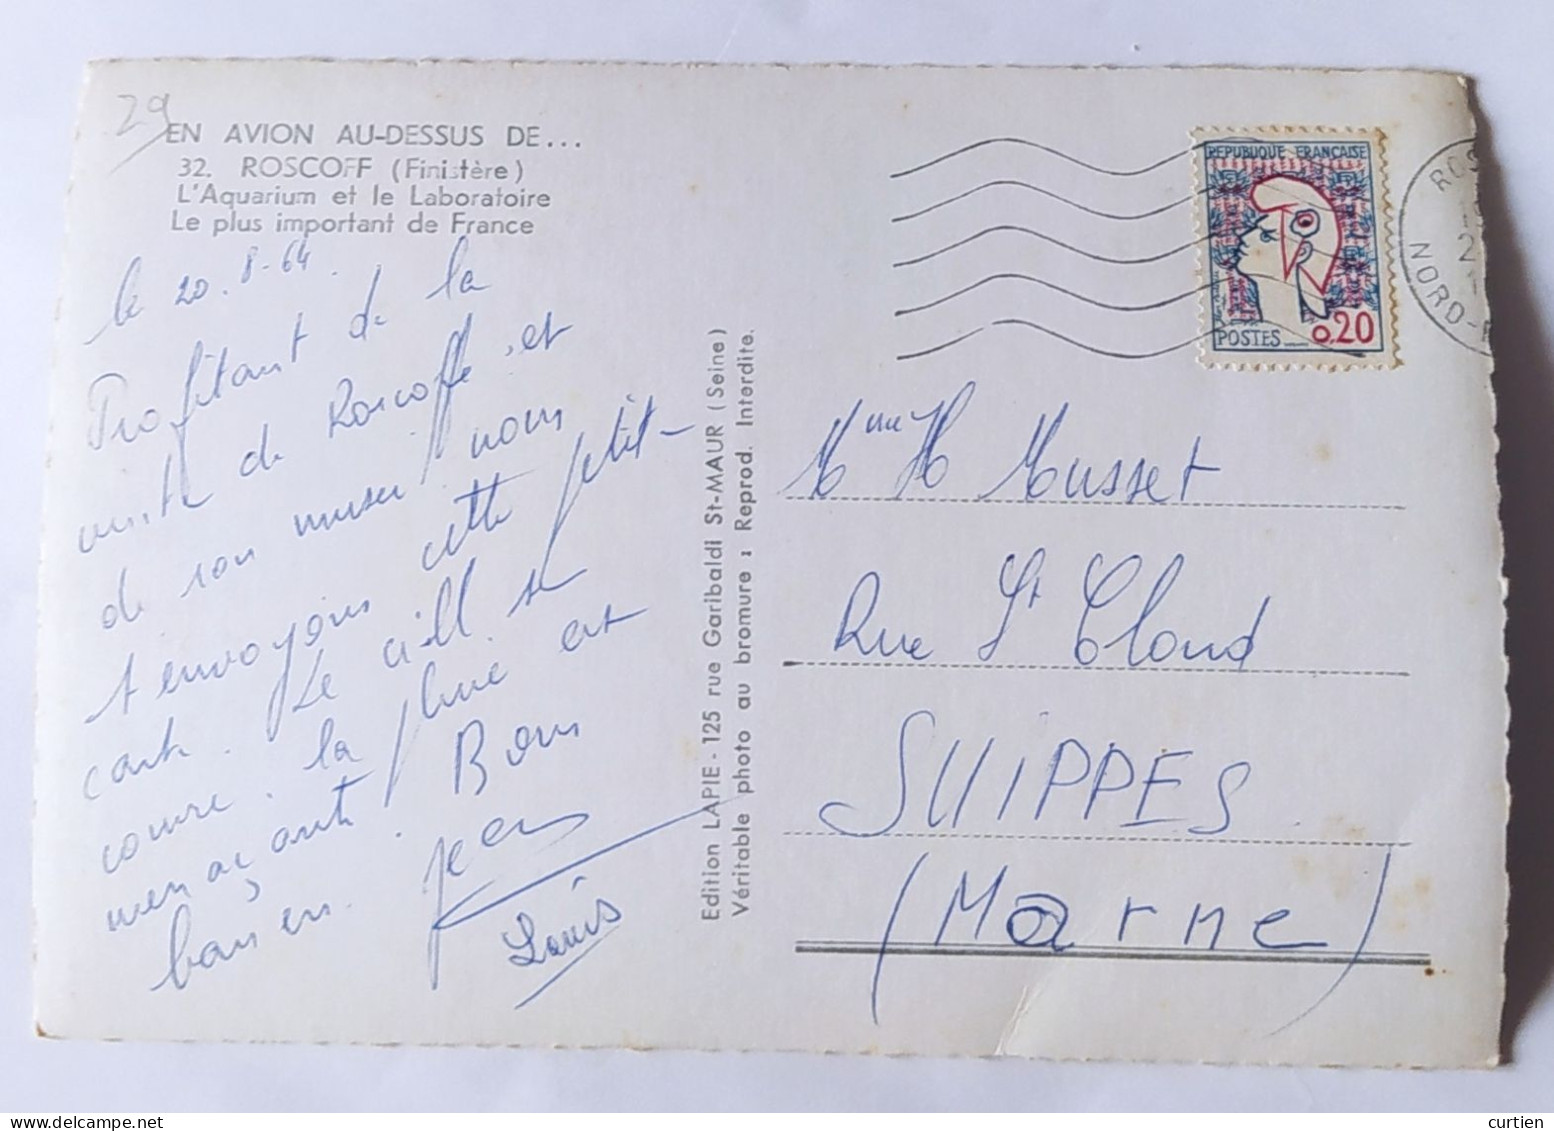 29
EN AVION AU-DESSUS DE...
32. ROSCOFF (Finistère)
L'Aquarium et le Laboratoire
Le plus important de France
le 20.8-64.
Profitant de la
visite de Roscoffe, et
de son musée nous
t'envoyons cette petit-
carte. Le ciel se
couvre. la pluie est
menaçante. Bons
baisers. Jean
Louis
Edition LAPIE - 125 rue Garibaldi St-MAUR (Seine)
Véritable photo au bromure : Reprod. Interdite.
REPUBLIQUE FRANÇAISE
POSTES 0,20
ROS
NORD-
Mme H Musset
Rue St Cloud
SUIPPES
(Marne)
curtien